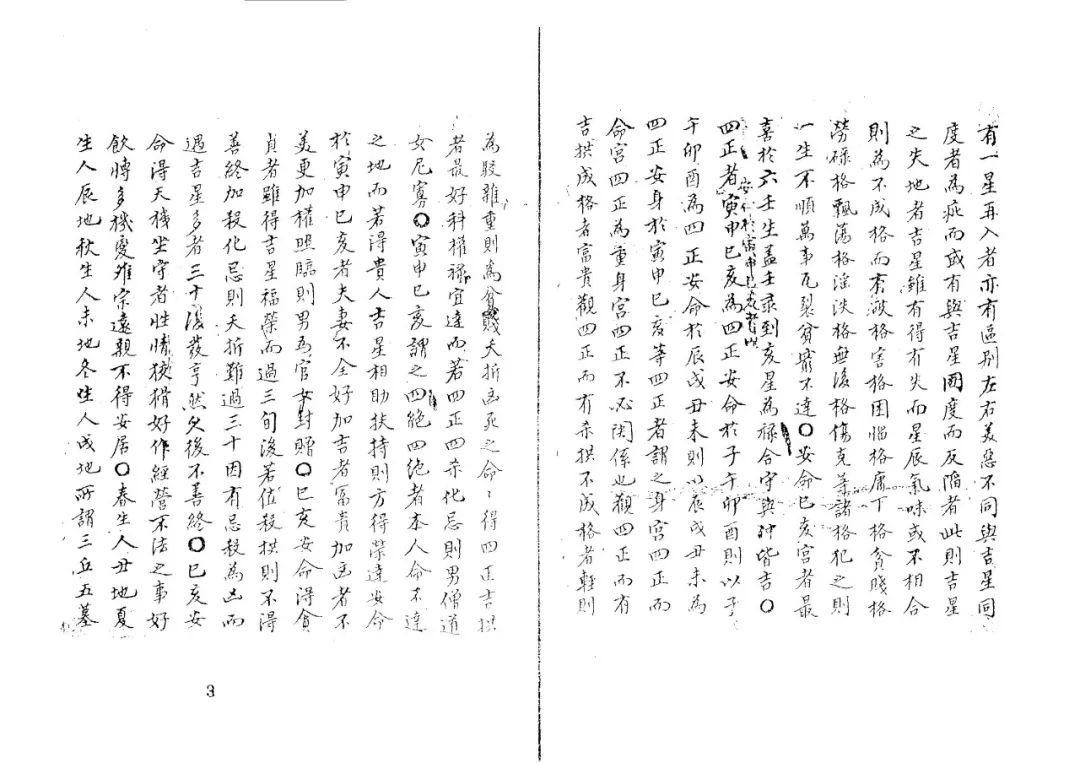 有一星再入者亦有區别左右美惡不同與吉星同
度者為疵而或有與吉星同度而反陷者此則吉星
之失地者吉星雖有得有失而星辰氣味或不相合
則為不成格而有波格害格困惱格庸丁格貧賤格
勞碌格飄蕩格淫泆格無後格傷克等諸格犯之則
一生不順萬事瓦裂貧窮不達○安命巳亥宮者最
喜於六壬生盖壬彔到亥星為祿合守與冲皆吉○
四正者安命於寅申巳亥者以寅申巳亥為四正安命於子午卯酉則以子
午卯酉為四正安命於辰戌丑未則以辰戌丑未為
四正安身於寅申巳亥等四正者謂之身宮四正而
命宮四正為重身宮四正不必関係也觀四正而有
吉拱成格者富貴觀四正而有杀拱不成格者輕則
為駁雜重則為貧賤夭折凶死之命〻得四正吉拱
者最好科權祿宜達而若四正四杀化忌則男僧道
女尼寡○寅申巳亥謂之四絕四絕者本人命不達
之地而若得貴人吉星相助扶持則方得榮達安命
於寅申巳亥者夫妻不全好加吉者富貴加凶者不
美更加權照臨則男為官女封贈○巳亥安命得貪
貞者雖得吉星福榮而過三旬後若值殺拱則不得
善終加殺化忌則夭折難過三十因有忌殺為凶而
遇吉星多者三十後發亨然久後不善終○巳亥安
命得天機坐守者性情狡猾好作經營不法之事好
飲博多機變难宗遠親不得安居○春生人丑地夏
生人辰地秋生人未地冬生人戌地所謂三丘五墓
3